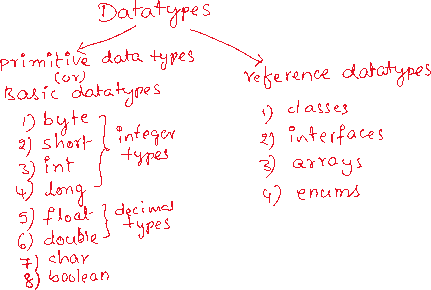 Datatypes
primitive data types
(or)
Basic datatypes
1) byte
2) short
3) int
4) long
integer
types
5) float
6) double
decimal
types
7) char
8) boolean
reference datatypes
1) classes
2) interfaces
3) arrays
4) enums